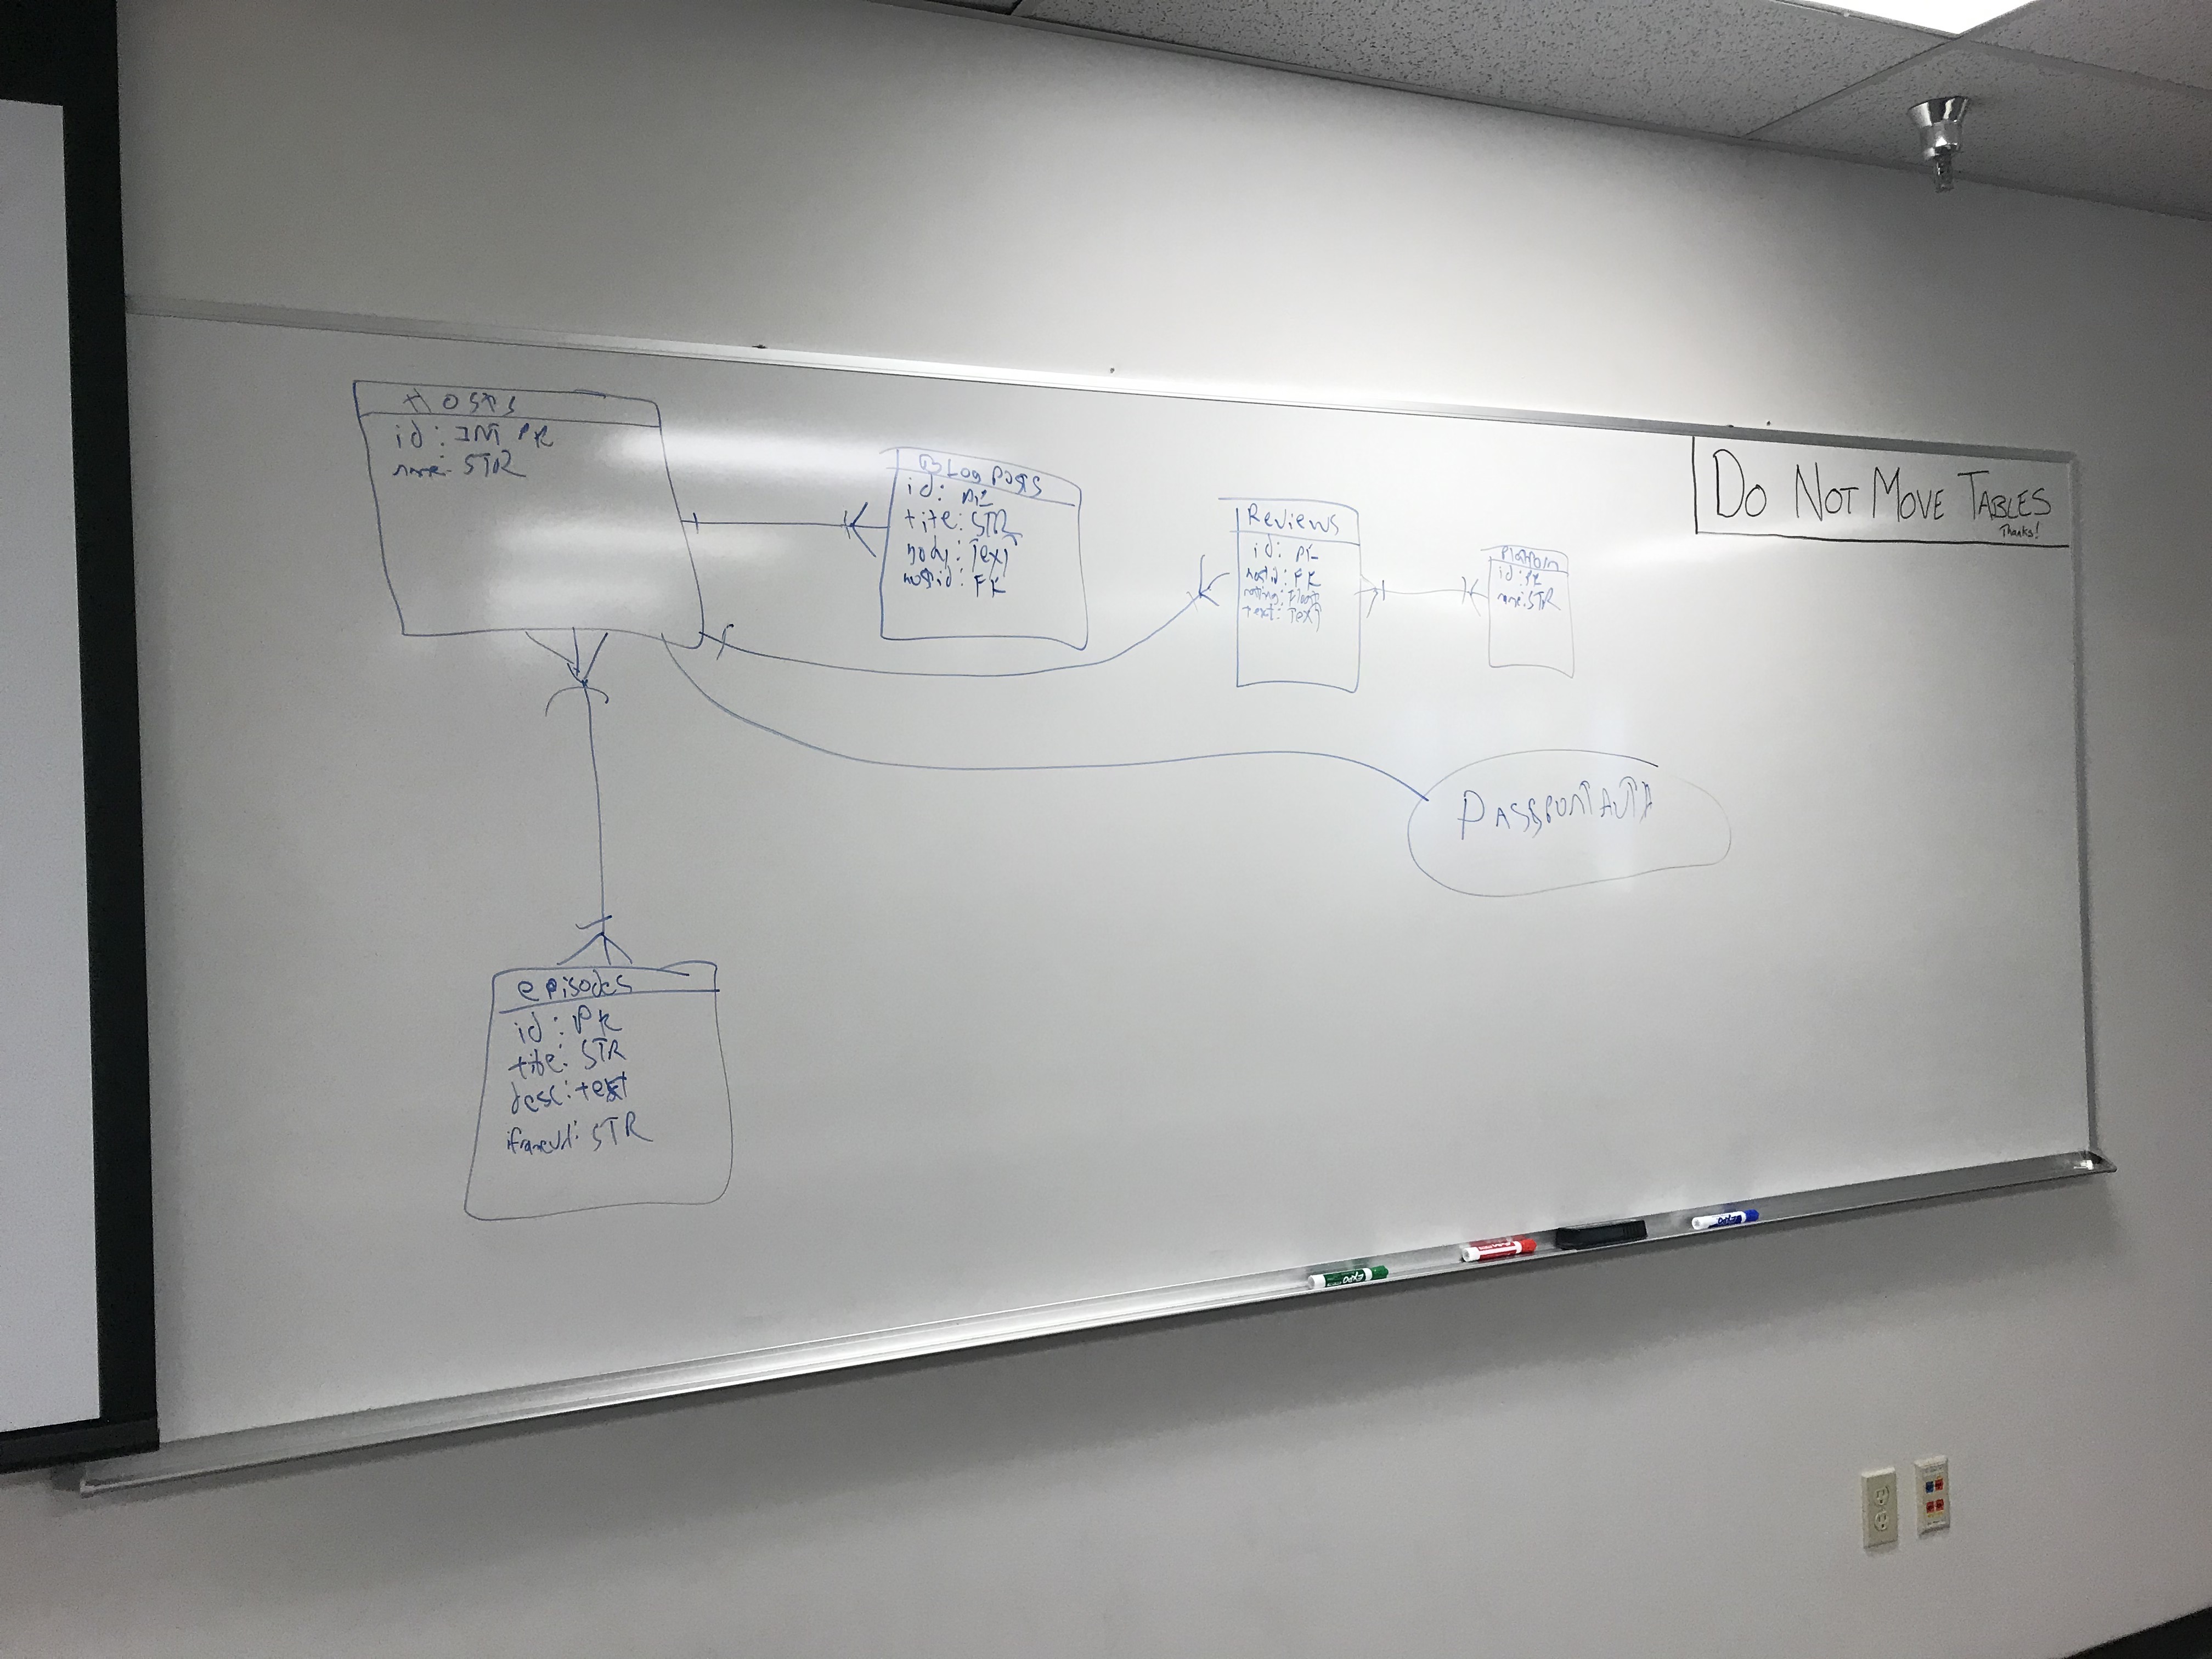 Hosts
id: INT PK
name: STR
Blog Posts
id: PK
title: STR
body: Text
hostid: FK
Reviews
id: PK
hostid: FK
rating: Float
text: Text
Platform
id: PK
name: STR
DO NOT MOVE TABLES
Thanks!
PASSPORT AUTH
episodes
id: PK
title: STR
desc: text
iframeurl: STR
EXPO
EXPO